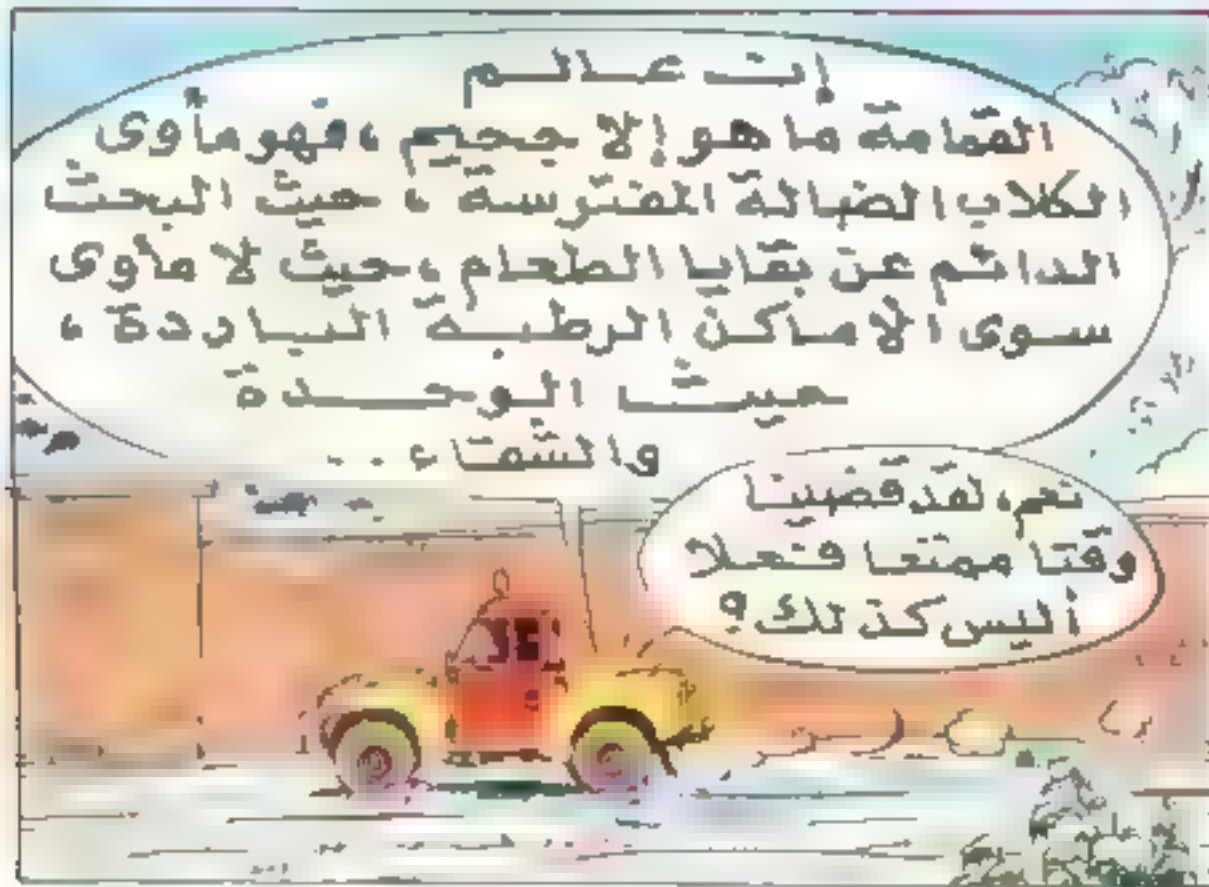 إن عالم
القمامة ما هو إلا جحيم ، فهو مأوى
الكلاب الضالة المفترسة ، حيث البحث
الدائم عن بقايا الطعام ، حيث لا مأوى
سوى الاماكن الرطبة الباردة ،
حيث الوحدة
والشقاء ..
نعم ، لقد قضينا
وقتا ممتعا فعلا
أليس كذلك ؟